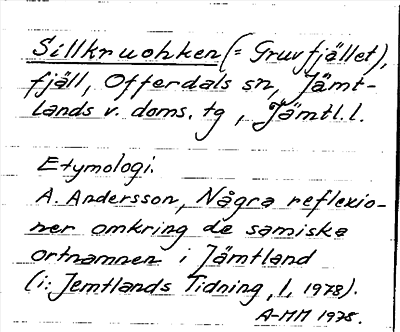 Sillkruohken (= Gruvfjället),
fjäll, Offerdals sn, Jämt-
lands v. doms. tg, Jämtl. l.
Etymologi.
A. Andersson, Några reflexio-
ner omkring de samiska
ortnamnen i Jämtland
(i: Jemtlands Tidning, 1, 1978).
A-MM 1978.